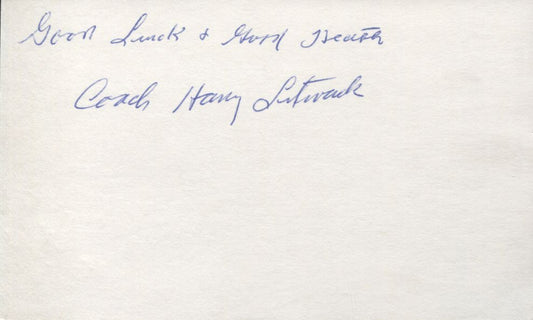 Good Luck & Good Health
Coach Harry Litwack